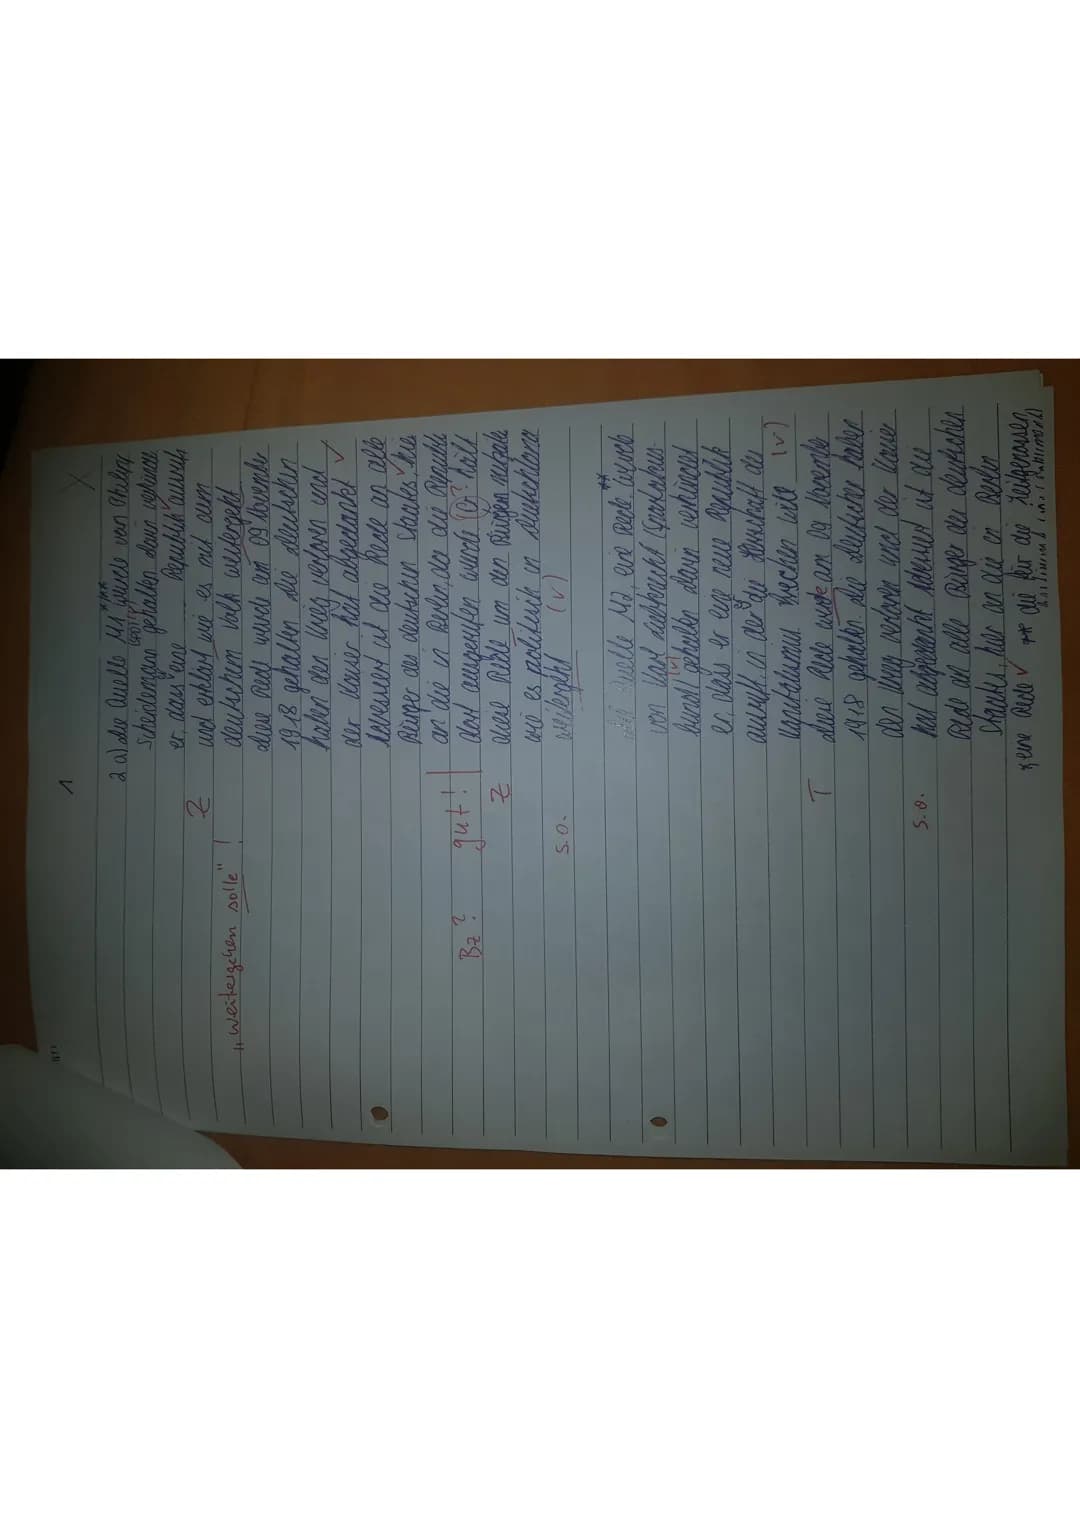 1
X
2 a) die Quelle M1 ***
wurde von Philipp
Scheidemann (SPD) gehalten, darin verkündet
er, dass eine Republik ausruft
und erklärt wie es mit dem
Z
deutschem Volk weitergeht.
"weitergehen solle"!
diese Rede wurde am 09 November
1918 gehalten die deutschen
haben den Krieg verloren und
der Kaiser hat abgedankt
Adressiert ist die Rede an alle
Bürger des deutschen Staates,
an die in Berlin, da die Republik
dort ausgerufen wurde, Er hält
Bz? gut!
diese Rede um den Bürgern
Z
wie es politisch in Deutschland
weitergeht (v)
s.o.
Quelle M2, eine Rede,** wurde
von Karl Liebknecht (Spartakus-
bund) gehalten darin verkündet
(v)
er, dass er eine neue Republik
ausruft, in der er die Herrschaft des
Kapitalismus brechen will (v)
diese Rede wurde am 09 November
T
1918 gehalten. Die deutschen haben
den Krieg verloren und der Kaiser
hat abgedankt Adressiert ist die
s.o.
Rede an alle Bürger des deutschen
Staates, hier an die in Berlin
*eine Rede ** die für die Zeitgenossen
bestimmt ist